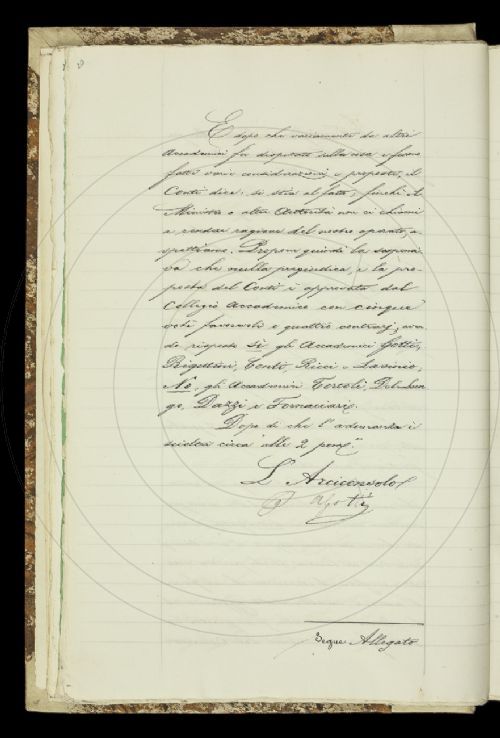 E dopo che variamente da altri
Accademici fu disputato sulla cosa e furon
fatte varie considerazioni e proposte, il
Conti dice: si stia al fatto; finchè il
Ministro o altra Autorità non ci chiami
a render ragione del nostro operato, a-
spettiamo. Propone quindi la sospensi-
va che nulla pregiudica, e la pro-
posta del Conti è approvata dal
Collegio Accademico con cinque
voti favorevoli e quattro contrarj, aven-
do risposto Sì gli Accademici Gotti,
Rigutini, Conti, Ricci e Lavinio,
No, gli Accademici Tortoli, Del Lun-
go, Dazzi e Fornaciari.
Dopo di che l'adunanza è
sciolta circa alle 2 pom.
L'Arciconsolo
Gotti
Segue Allegato